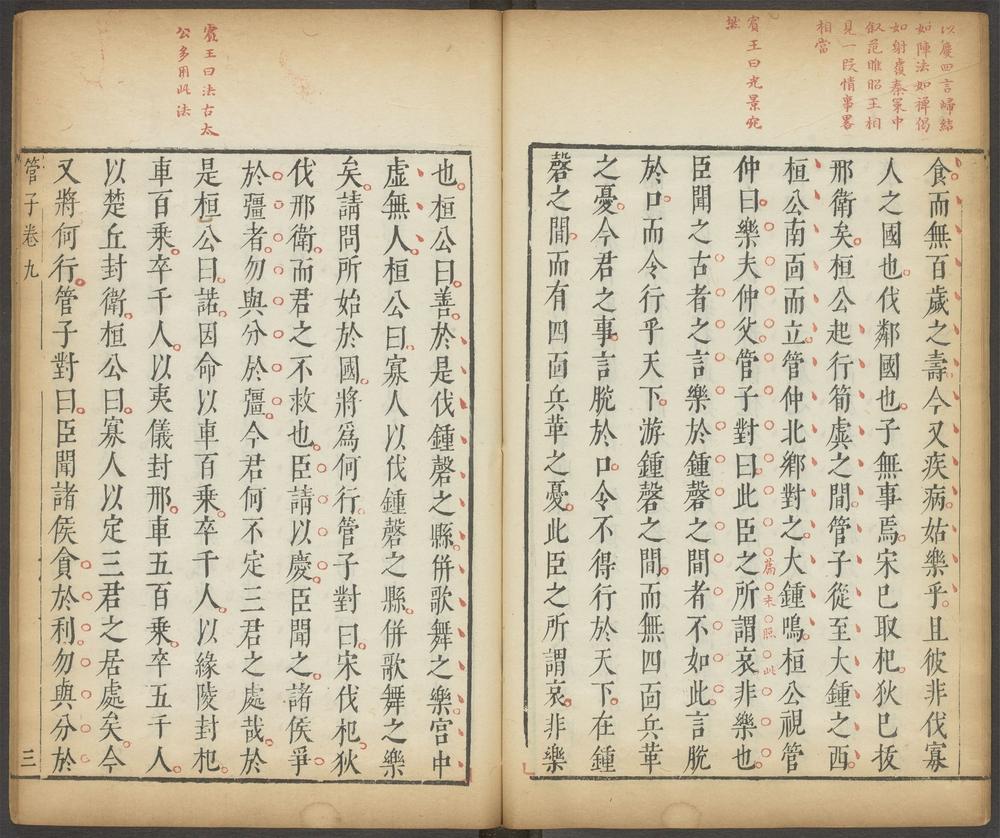 以慶四言歸結
如陣法如禪偈
如射覆秦策中
叙范睢昭王相
見一段情事畧
相當
賓王曰光景宛
然
食而無百歲之壽今又疾病姑樂乎且彼非伐寡
人之國也伐鄰國也子無事焉宋已取杞狄已拔
邢衛矣桓公起行筍虡之間管子從至大鍾之西
桓公南面而立管仲北鄉對之大鍾鳴桓公視管
篇末照此
仲曰樂夫仲父管子對曰此臣之所謂哀非樂也
臣聞之古者之言樂於鍾磬之間者不如此言脫
於口而令行乎天下游鍾磬之間而無四面兵革
之憂今君之事言脫於口令不得行於天下在鍾
磬之間而有四面兵革之憂此臣之所謂哀非樂
賓王曰法古太
公多用此法
也桓公曰善於是伐鍾磬之縣併歌舞之樂宮中
虛無人桓公曰寡人以伐鍾磬之縣併歌舞之樂
矣請問所始於國將爲何行管子對曰宋伐杞狄
伐邢衛而君之不救也臣請以慶臣聞之諸侯爭
於彊者勿與分於彊今君何不定三君之處哉於
是桓公曰諾因命以車百乘卒千人以緣陵封杞
車百乘卒千人以夷儀封邢車五百乘卒五千人
以楚丘封衛桓公曰寡人以定三君之居處矣今
又將何行管子對曰臣聞諸侯貪於利勿與分於
管子卷九
三